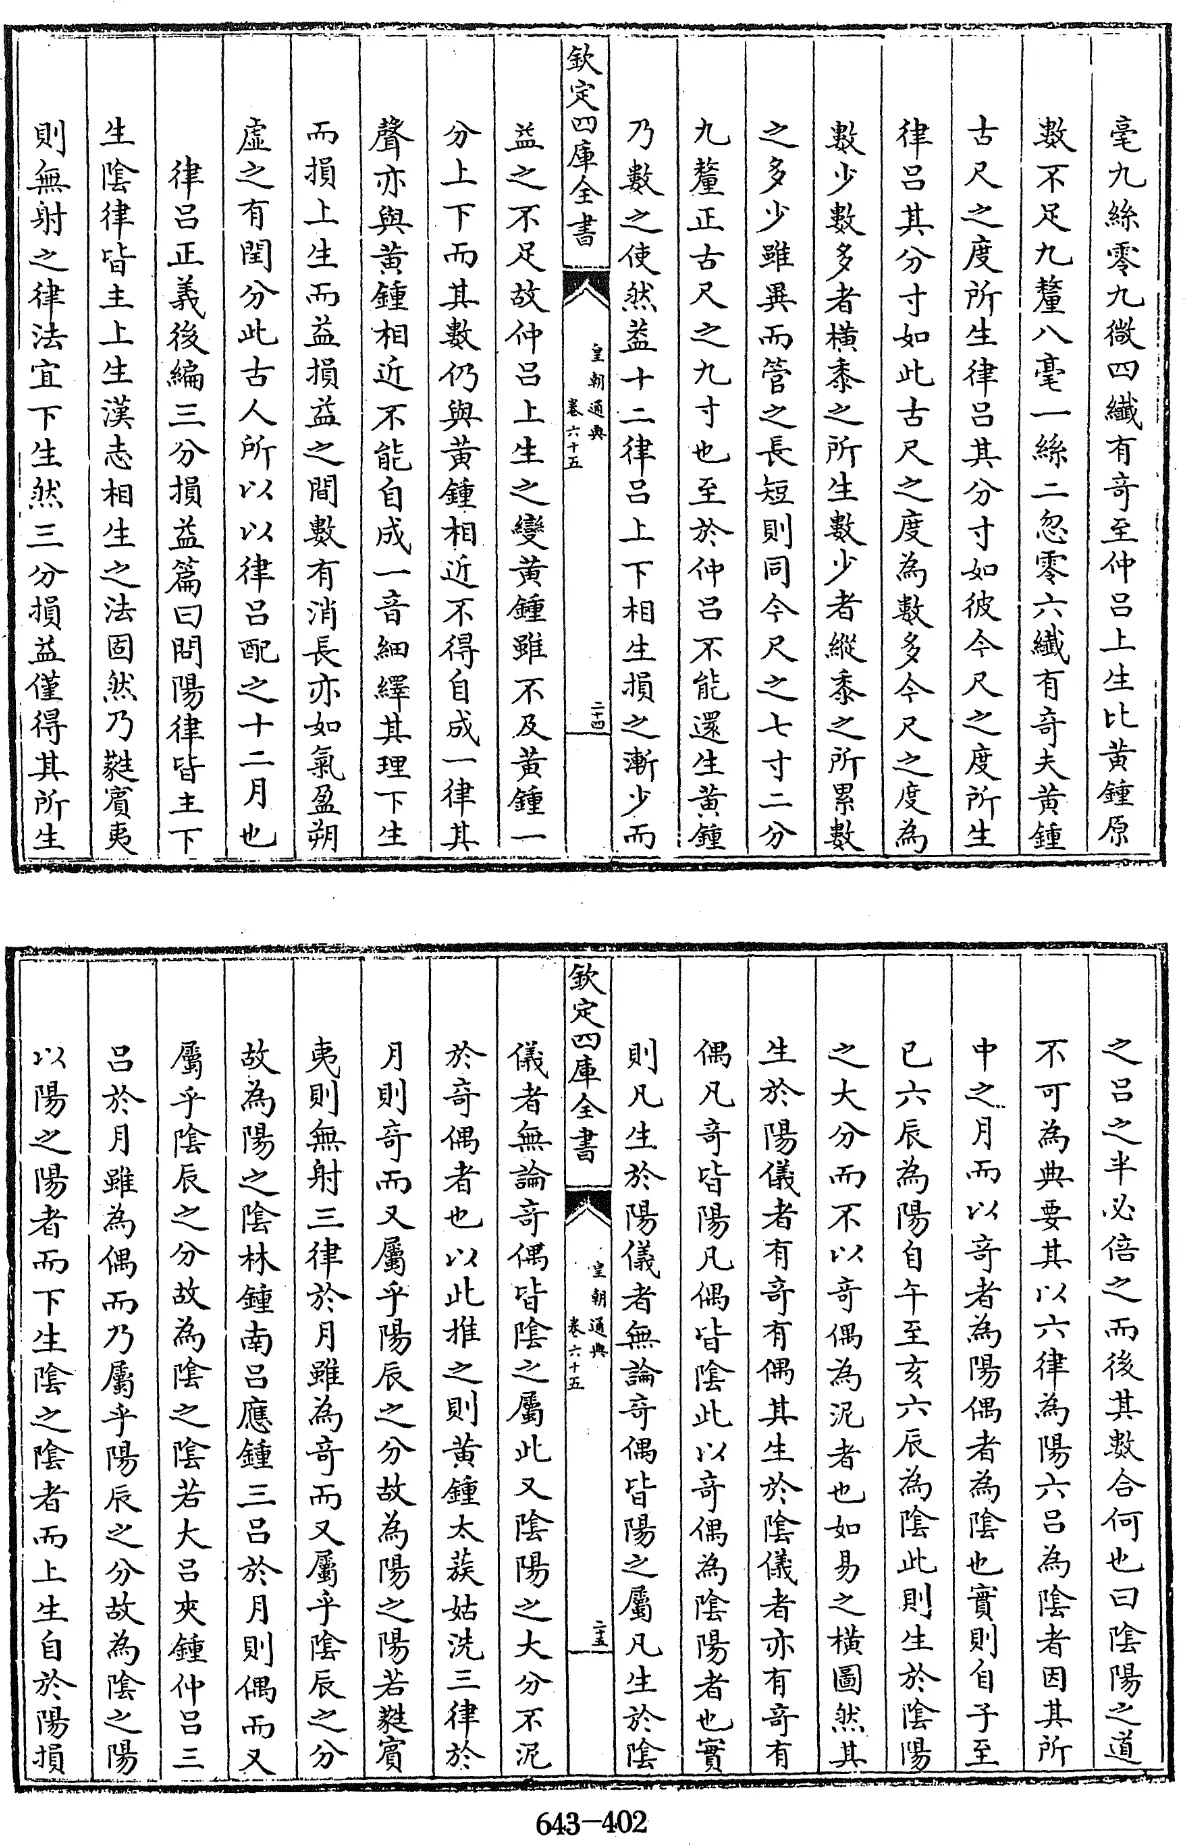 毫九絲零九微四纖有奇至仲呂上生比黃鍾原
數不足九釐八毫一絲二忽零六纖有奇夫黃鍾
古尺之度所生律呂其分寸如彼今尺之度所生
律呂其分寸如此古尺之度為數多今尺之度為
數少數多者橫黍之所生數少者縱黍之所累數
之多少雖異而管之長短則同今尺之七寸二分
九釐正古尺之九寸也至於仲呂不能還生黃鍾
乃數之使然蓋十二律呂上下相生損之漸少而
欽定四庫全書
皇朝通典
卷六十五
二十四
益之不足故仲呂上生之變黃鍾雖不及黃鍾一
分上下而其數仍與黃鍾相近不得自成一律其
聲亦與黃鍾相近不能自成一音細繹其理下生
而損上生而益損益之間數有消長亦如氣盈朔
虛之有閏分此古人所以以律呂配之十二月也
律呂正義後編三分損益篇曰問陽律皆主下
生陰律皆主上生漢志相生之法固然乃蕤賓夷
則無射之律法宜下生然三分損益僅得其所生
之呂之半必倍之而後其數合何也曰陰陽之道
不可為典要其以六律為陽六呂為陰者因其所
中之月而以奇者為陽偶者為陰也實則自子至
已六辰為陽自午至亥六辰為陰此則生於陰陽
之大分而不以奇偶為泥者也如易之橫圖然其
生於陽儀者有奇有偶其生於陰儀者亦有奇有
偶凡奇皆陽凡偶皆陰此以奇偶為陰陽者也實
則凡生於陽儀者無論奇偶皆陽之屬凡生於陰
欽定四庫全書
皇朝通典
卷六十五
二十五
儀者無論奇偶皆陰之屬此又陰陽之大分不泥
於奇偶者也以此推之則黃鍾太蔟姑洗三律於
月則奇而又屬乎陽辰之分故為陽之陽若蕤賓
夷則無射三律於月雖為奇而又屬乎陰辰之分
故為陽之陰林鍾南呂應鍾三呂於月則偶而又
屬乎陰辰之分故為陰之陰若大呂夾鍾仲呂三
呂於月雖為偶而乃屬乎陽辰之分故為陰之陽
以陽之陽者而下生陰之陰者而上生自於陽損
643-402